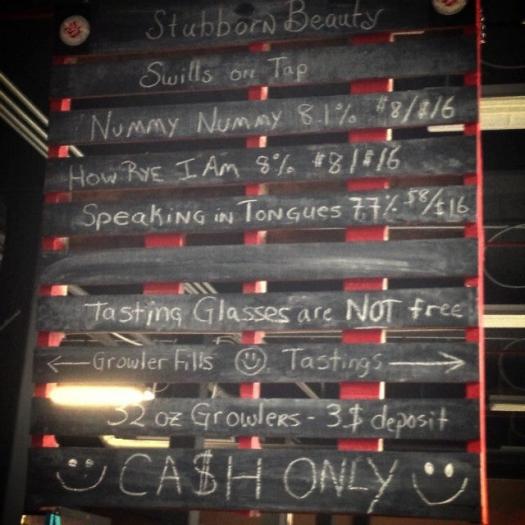 Stubborn Beauty
Swills on Tap
Nummy Nummy 8.1% $8/$16
How Rye I Am 8% $8/$16
Speaking in Tongues 7.7% $8/$16
Tasting Glasses are NOT free
← Growler Fills ☺ Tastings →
32 oz Growlers - 3$ deposit
CA$H ONLY